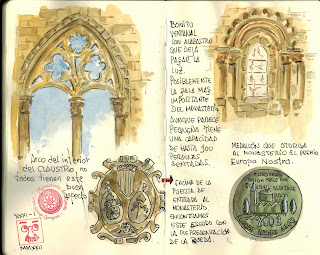 Arco del interior
del CLAUSTRO, no
todos tienen este
buen
aspecto
XXXI-I
MMXXII
BONITO
VENTANAL
CON ALABASTRO
QUE DEJA
PASAR LA
LUZ.
POSIBLEMENTE
LA SALA MAS
IMPORTANTE
DEL MONASTERIO.
AUNQUE PARECE
PEQUEÑA TIENE
UNA CAPACIDAD
DE HASTA 300
PERSONAS
SENTADAS.
ENCIMA DE LA
PUERTA DE
ENTRADA AL
MONASTERIO
ENCONTRAMOS
ESTE ESCUDO CON
LA REPRESENTACIÓN
DE LA
MEDALLÓN QUE OTORGA
AL MONASTERIO EL PREMIO
Europa Nostra.